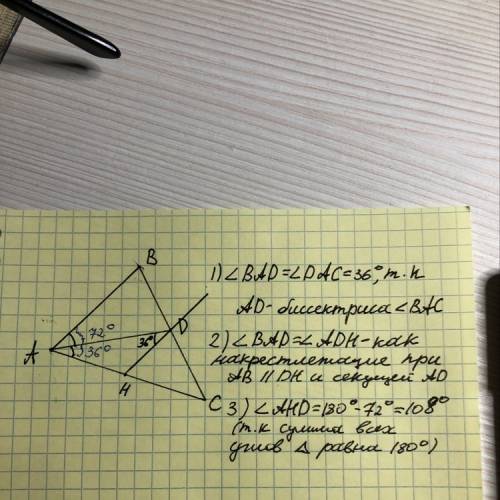 B
1) ∠BAD=∠DAC=36°, т.к
AD-биссектриса ∠BAC
72°
D
36°
2) ∠BAD=∠ADH-как
A
36°
накрестлежащие при
H
AB || DH и секущей AD
C
3) ∠AHD=180°-72°=108°
(т.к сумма всех
углов △ равна 180°)